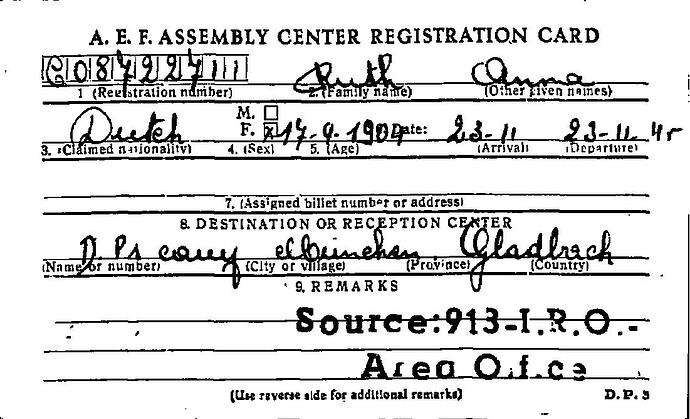 A. E. F. ASSEMBLY CENTER REGISTRATION CARD
G 0 8 7 2 2 7 1 1 Ruth Anna
1 (Registration number) 2. (Family name) (Other given names)
M. ☐
Dutch F. ☒ 17-9-1904 Date: 23-11 23-11-45
3. (Claimed nationality) 4. (Sex) 5. (Age) (Arrival) (Departure)
7. (Assigned billet number or address)
8. DESTINATION OR RECEPTION CENTER
D. Ps München Gladbach
(Name or number) (City or village) (Province) (Country)
9. REMARKS
Source:913-I.R.O.-
Area Office
(Use reverse side for additional remarks) D.P. 3